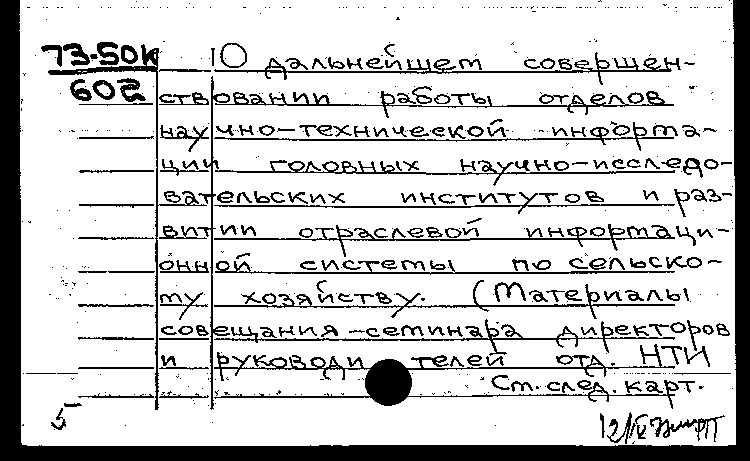 73-50к О дальнейшем совершен-
602 ствовании работы отделов
научно-технической информа-
ции головных научно-исследо-
вательских институтов и раз-
витии отраслевой информаци-
онной системы по сельско-
му хозяйству. (Материалы
совещания-семинара директоров
и руководителей отд. НТИ
См. след. карт.
5